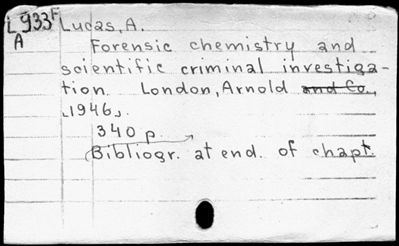 L 933F Lucas, A.
A
Forensic chemistry and
scientific criminal investiga-
tion. London, Arnold and Co.,
1946.
340 p.
Bibliogr. at end. of chapt.